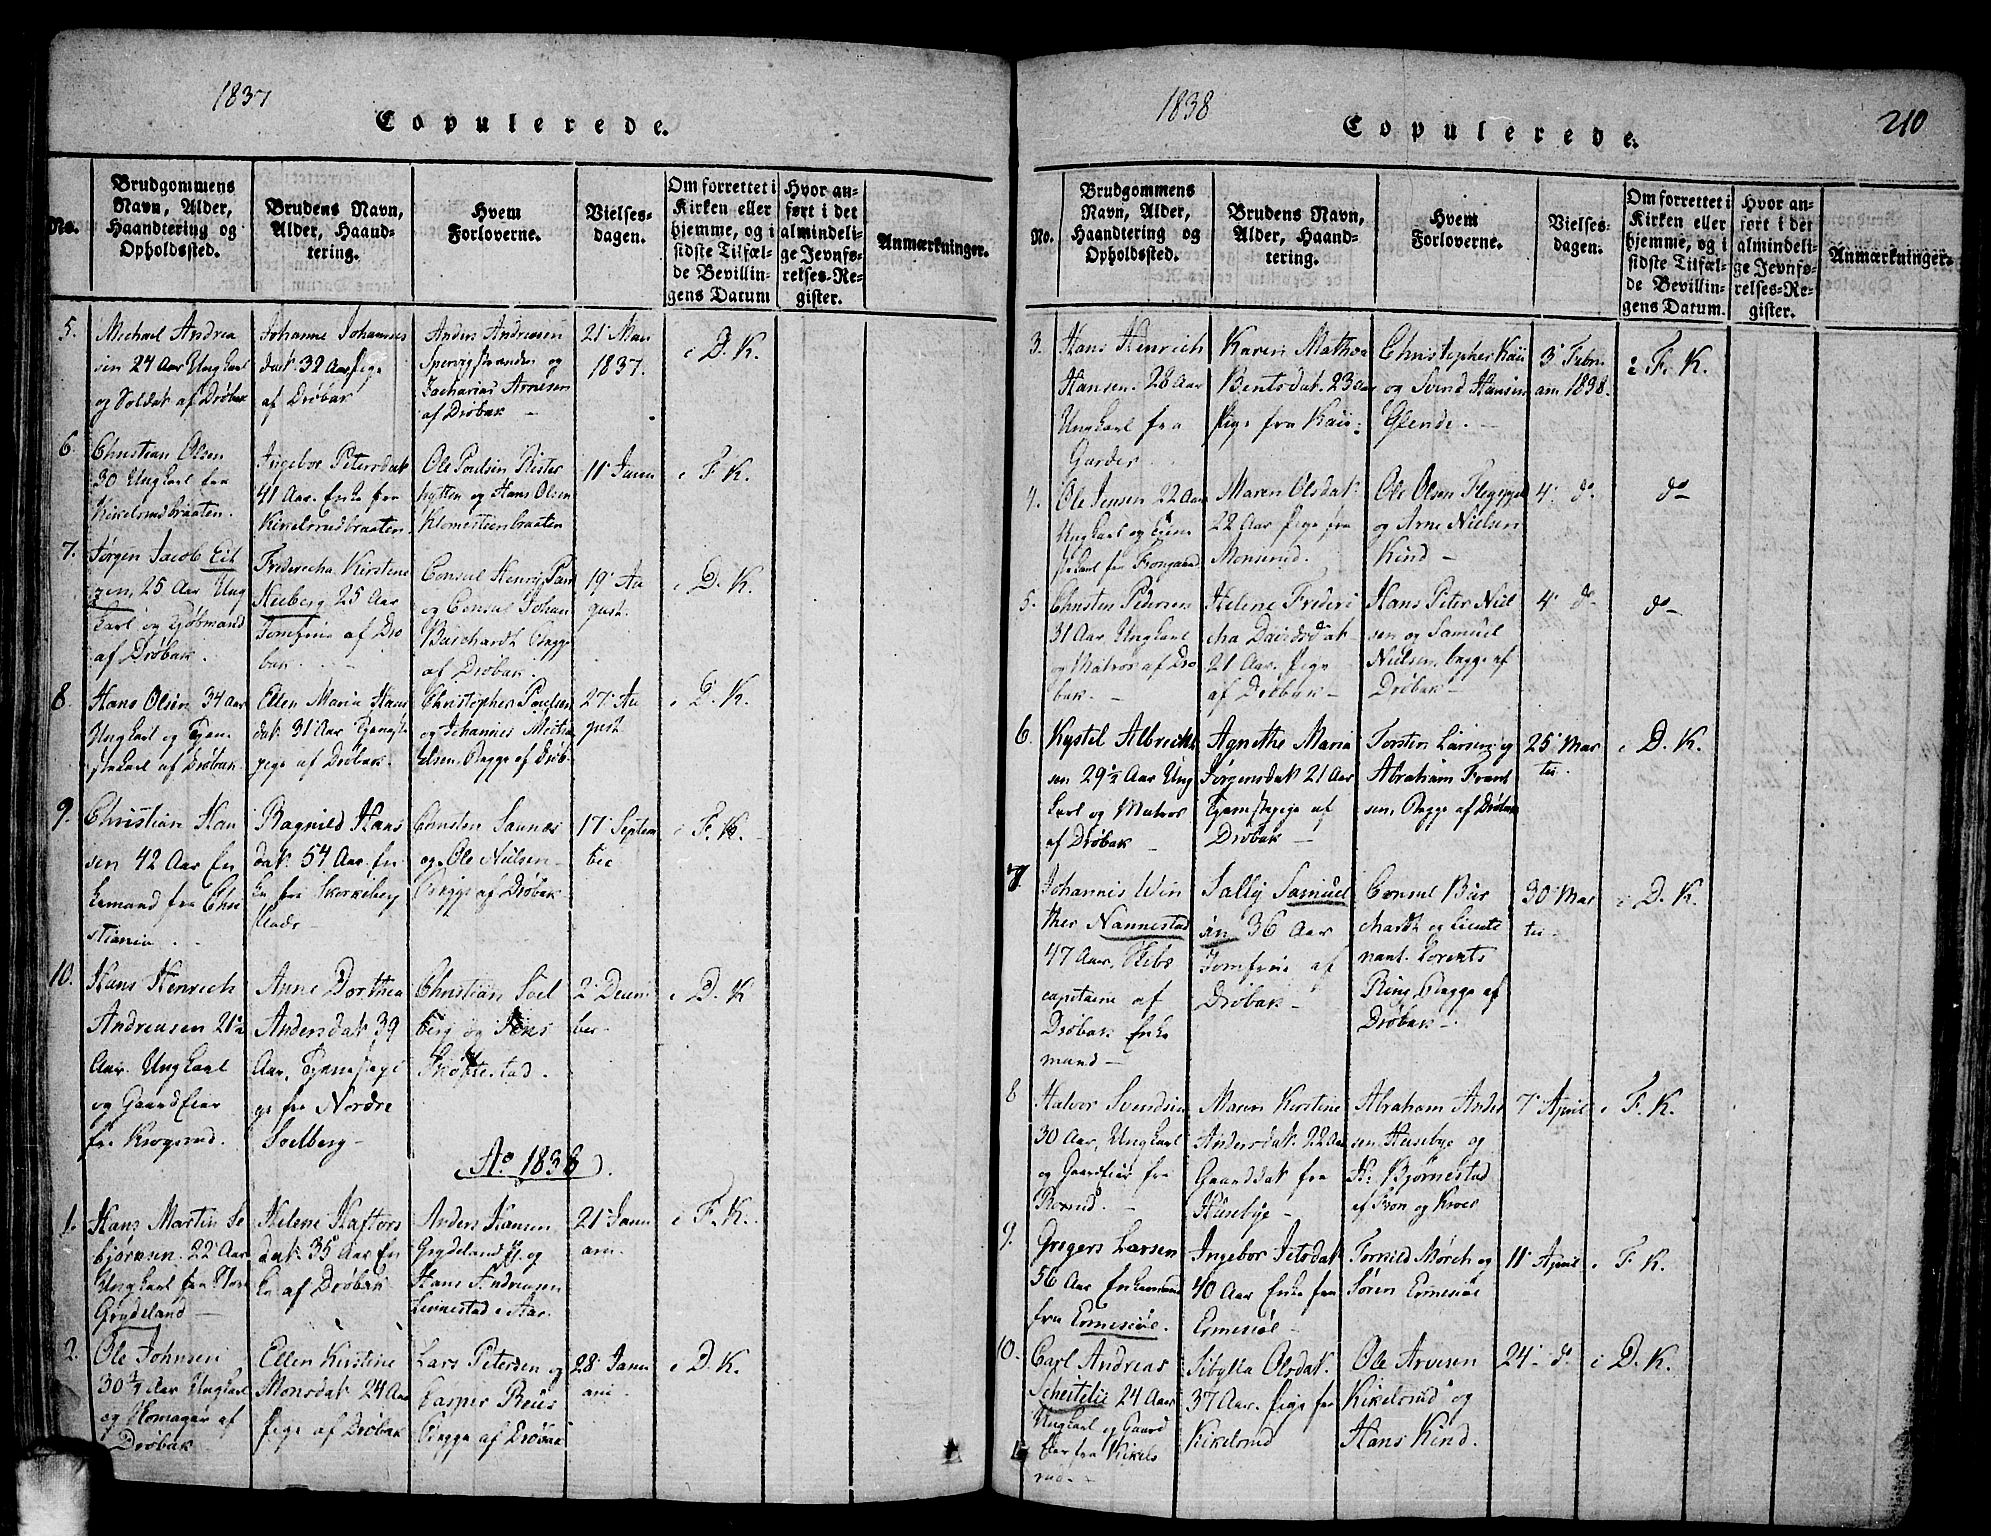 1837
Copulerede.
No.
Brudgommens
Navn, Alder,
Haandtering og
Opholdssted.
Brudens Navn,
Alder, Haand-
tering.
Hvem
Forloverne.
Vielses-
dagen.
Om forrettet i
Kirken eller
hjemme, og i
sidste Tilfæl-
de Bevillin-
gens Datum
Hvor an-
ført i det
almindeli-
ge Jevnfø-
relses-Re-
gister.
Anmærkninger.
5.
Michael Andrea
sen 24 Aar Ungkarl
og Soldat af Drøbak
Johanne Johannes
dat. 32 Aar Pige
af Drøbak
Anders Andreasen
og
Zacharias Arnesen
af Drøbak -
21 Mai
1837.
i D. K.
6
Christian Olsen
30 Ungkarl fra
Kikelsrudbraaten.
Ingebor Petersdat
41 Aar. Enke fra
Kikelsrudbraaten.
Ole Poulsen
hytten og Hans Olsen
Klomesteenbraaten
11
i F. K.
7.
Jørgen Jacob Eil
25 Aar Ung
karl og Kjøbmand
af Drøbak.
Frederecha Kirstine
25 Aar
Jomfrue af Drø
bak.
Consul Henry Parr
og Consul Johan
Burchardt Begge
af Drøbak.
19 Au
gust.
i D. K.
8.
Hans Olsen 34 Aar
Ungkarl og Tjene
stekarl af Drøbak.
Ellen Maria Hans
dat. 31 Aar Tjeneste
pige af Drøbak.
Christopher Poulsen
og Johannes Micha
elsen, Begge af Drøb-
27 Au
gust
i D. K.
9.
Christian Han
sen 42 Aar En
kemand fra Chri
stiania.
Ragnild Hans
dat. 54 Aar. En
ke fra Skorkeberg
Christen Saunæs
og Ole Nielsen
Begge af Drøbak
17 Septem
ber
i F. K.
10.
Hans Henrich
Andreasen 21½
Aar. Ungkarl
og Gaardeier
fra Krogsrud.
Anne Dorthea
Andersdat. 39
Aar, Tjenestepi
ge fra Nordre
Soelberg-
Christian Soel
berg og Jens
Skoftestad.
2 Decem
ber
i D. K
Ao 1838.
1.
Hans Martin Se
bjørnsen. 22 Aar
Ungkarl fra Store
Grydeland-
Helene Haftors
dat. 35 Aar En
ke af Drøbak
Anders Hansen
Grydeland og
Hans Andreasen
Linnestad i Aas.
21 Janu
ari.
i F. K.
2.
Ole Johnsen
30¾ Aar Ungkarl
og Skomager af
Drøbak
Ellen Kirstine
Monsdat. 24 Aar
Pige af Drøbak
Lars Petersen og
Casper Reüs
Begge af Drøbak
28 Janu
ari.
i D. K.
1838
Copulerede.
210
No.
Brudgommens
Navn, Alder,
Haandtering og
Opholdssted.
Brudens Navn,
Alder, Haand-
tering.
Hvem
Forloverne.
Vielses-
dagen.
Om forrettet i
Kirken eller
hjemme, og i
sidste Tilfæl-
de Bevillin-
gens Datum.
Hvor an-
ført i det
almindeli-
ge Jevnfø-
relses-Re-
gister.
Anmærkninger.
3.
Hans Henrich
Hansen. 28 Aar
Ungkarl fra
Garder
Karen Mathea
Bentsdat. 23 Aar
Pige fra
Christopher
og Svend Hansen
Glende.
3 Febru
ari 1838.
i F. K.
4.
Ole Jensen 22 Aar
Ungkarl og Tjene
stekarl fra
Maren Olsdat.
22 Aar Pige fra
Monsrud.
Ole Olsen
og Arne Nielsen
Kind -
4 do
do
5.
Christen Pedersen
31 Aar Ungkarl
og Matros af Drø
bak.
Helene Frederi
cha Davidsdat
21 Aar. Pige
af Drøbak -
Hans Peter Niel
sen og Samuel
Nielsen, begge af
Drøbak -
4 do
do
6.
Kystel Albrecht
sen 29½ Aar Ung
karl og Matros
af Drøbak
Agnethe Maria
Jørgensdat. 21 Aar
Tjenestepige af
Drøbak -
Torsten Larsen og
Abraham Frant
sen, Begge af Drøbak
25 Mar
tii.
i D. K.
7.
Johannes Win
ther Nannestad
47 Aar, Skibs
capitaine af
Drøbak Enke
mand -
Sally Samuel
sen 36 Aar
Jomfrue af
Drøbak -
Consul Bur
chardt og Lieute
nant. Lorents
Ring, Begge af
Drøbak -.
30 Mar
tii-
i D. K.
8
Halvor Svendsen
30 Aar, Ungkarl
og Gaardeier fra
Maren Kirstine
Andersdat. 22 Aar
Gaarddat fra
Husebye -
Abraham Ander
sen Husebye og
H. Bjørnestad
af Fron og Kroer
7 April
i F. K.
9.
Gregers Larsen
56 Aar Enkemand
fra Ermesiøe.
Ingebor
40 Aar Enke fra
Ermesiøe -
Torkild Mørch og
Søren Ermesiøe
11 April
i F. K.
10.
Carl Andreas
Scheitelie 24 Aar
Ungkarl og Gaard
eier fra Kikels
rud.-
Sibylla Olsdat.
37 Aar. Pige fra
Kikelsrud
Ole Arvesen
Kikelsrud og
Hans Kind.
24 do
i D. K.